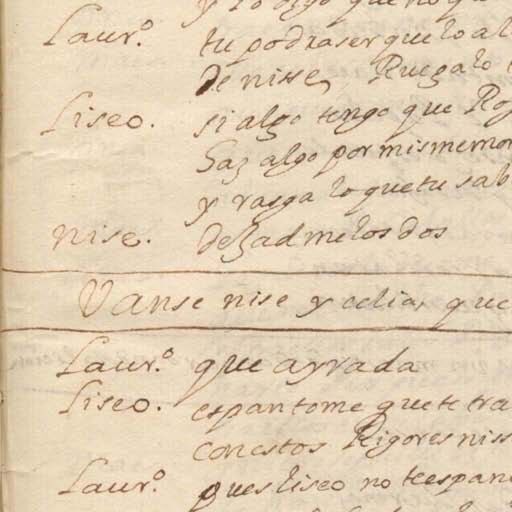 y lo digo que no qu
Laur.º tu podra ser que lo al
de nisse, Ruegalo
Liseo. si algo tengo que Rog
haz algo por mis memor
y rasga lo que tu sab
nise. dexadme los dos
Vanse nise y celia, que
Laur.º que ayrada
Liseo. espantome que te tra
con estos Rigores niss
Laur.º pues liseo no te espan